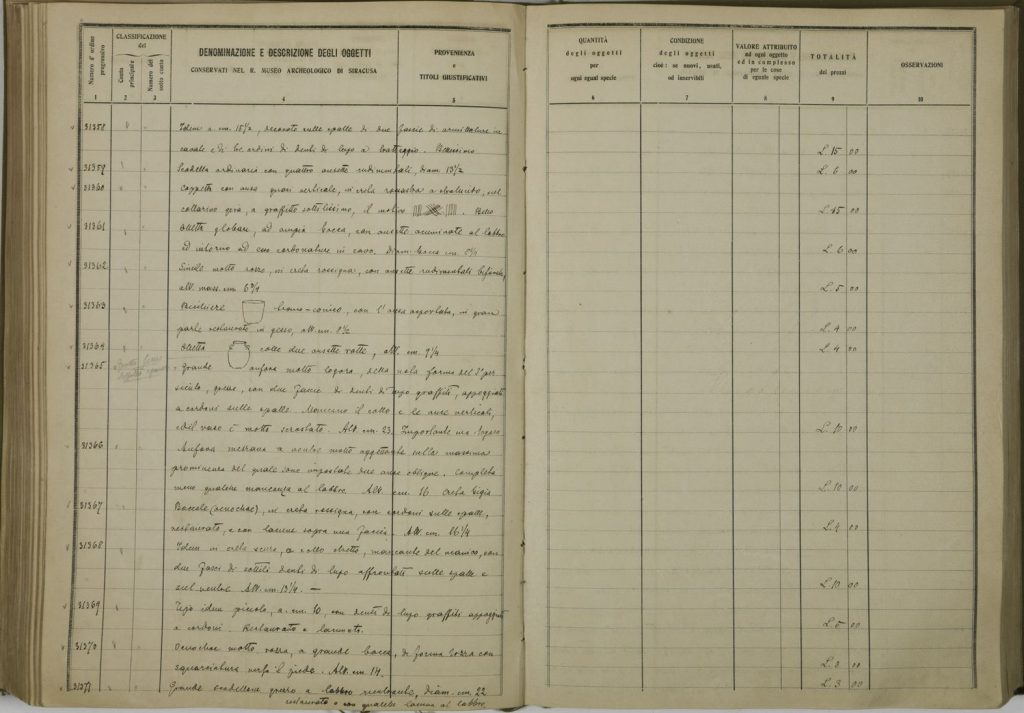 Numero d'ordine progressivo
CLASSIFICAZIONE del
Conto principale
Numero del sotto conto
DENOMINAZIONE E DESCRIZIONE DEGLI OGGETTI
CONSERVATI NEL R. MUSEO ARCHEOLOGICO DI SIRACUSA
PROVENIENZA
e
TITOLI GIUSTIFICATIVI
1 2 3 4 5
31358 Idem a cm. 18 1/2, decorato sulle spalle di due fascie di
cavate e di tre ordini di denti di lupo a tratteggio.
31359 Scodella ordinaria con quattro ansette rudimentali, diam. 13 1/2
31360 Coppetta con ansa quasi verticale, in creta rossastra a
collarino gira, a graffito sottilissimo, il motivo
31361 Olletta globare, ad ampia bocca, con ansette acuminate al labbro
ed intorno ad esso cordonature in cavo. Diam. bocca cm.
31362 Simile molto rozzo, in creta rossigna, con ansette rudimentali
alt. mass. cm. 6 3/4
31363 Bicchiere tronco-conico, con l'ansa asportata, in gran
parte restaurato in gesso, alt. cm. 8 1/2
31364 Olletta colle due ansette rotte, alt. cm. 9 1/4
31365 Grande anfora molto logora, della nota forma del 2° per.
siculo, con due fascie di denti di lupo graffiti, appoggiati
a cordoni sulle spalle. Mancano il collo e le anse verticali,
ed il vaso è molto scrostato. Alt. cm. 23. Importante
31366 Anfora mezzana a ventre molto aggettante sulla massima
prominenza del quale sono impostate due anse oblique. Completa
meno qualche mancanza al labbro. Alt. cm. 16. Creta bigia
31367 Boccale (oenochoe), in creta rossigna, con cordoni sulle spalle,
restaurato, e con lacune sopra una faccia. Alt. cm. 26 1/4
31368 Idem in creta scura, a collo stretto, mancante del manico, con
due fasci di sottili denti di lupo affrontati sulle spalle e
sul ventre. Alt. cm. 13 1/4. —
31369 Tipo idem piccolo, a cm. 10, con denti di lupo graffiti appoggiati
a cordoni. Restaurato e lacunato.
31370 Oenochoe molto rozza, a grande bocca, di forma tozza con
squarciatura verso il piede. Alt. cm. 14.
31371 Grande scodellone grezzo a labbro rientrante, diam. cm. 22
restaurato e con qualche lacuna al labbro.
QUANTITÀ
degli oggetti
per
ogni egual specie
CONDIZIONE
degli oggetti
cioè: se nuovi, usati,
od inservibili
VALORE ATTRIBUITO
ad ogni oggetto
ed in complesso
per le cose
di eguale specie
TOTALITÀ
dei prezzi
OSSERVAZIONI
6 7 8 9 10
L. 15 00
L. 6 00
L. 45 00
L. 6 00
L. 5 00
L. 4 00
L. 4 00
L. 10 00
L. 10 00
L. 4 00
L. 10 00
L. 5 00
L. 3 00
L. 3 00